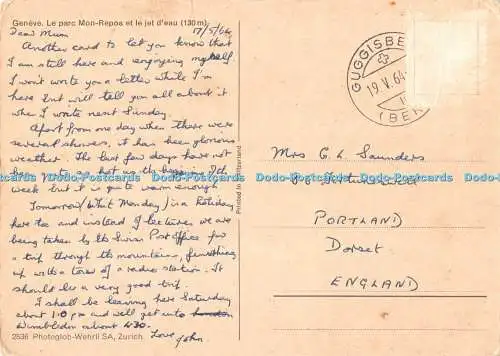 Genève. Le parc Mon-Repos et le jet d'eau (130 m).
17/5/64
Dear Mum
Another card to let you know that
I am still here and enjoying myself.
I won't write you a letter while I'm
here but will tell you all about it
when I write next Sunday.
Apart from one day when there were
several showers, it has been glorious
weather. The last few days have not
been quite so hot as the beginning of the
week but it is quite warm enough.
Tomorrow (Whit Monday) is a holiday
here too and instead of lectures we are
being taken by the Swiss Post Office for
a trip through the mountains, finishing
up with a tour of a radio station. It
should be a very good trip.
I shall be leaving here Saturday
about 1.0 pm and will get into London
Wimbledon about 4.30.
Love John.
2836 Photoglob-Wehrli SA, Zürich
Printed in Switzerland
GUGGISBERG
19.V.64
(BERN)
Mrs G. L. Saunders
86
PORTLAND
Dorset
ENGLAND
Dodo-Postcards Dodo-Postcards Dodo-Postcards Dodo-Postcards Dodo-Postcards Dodo-Postcards